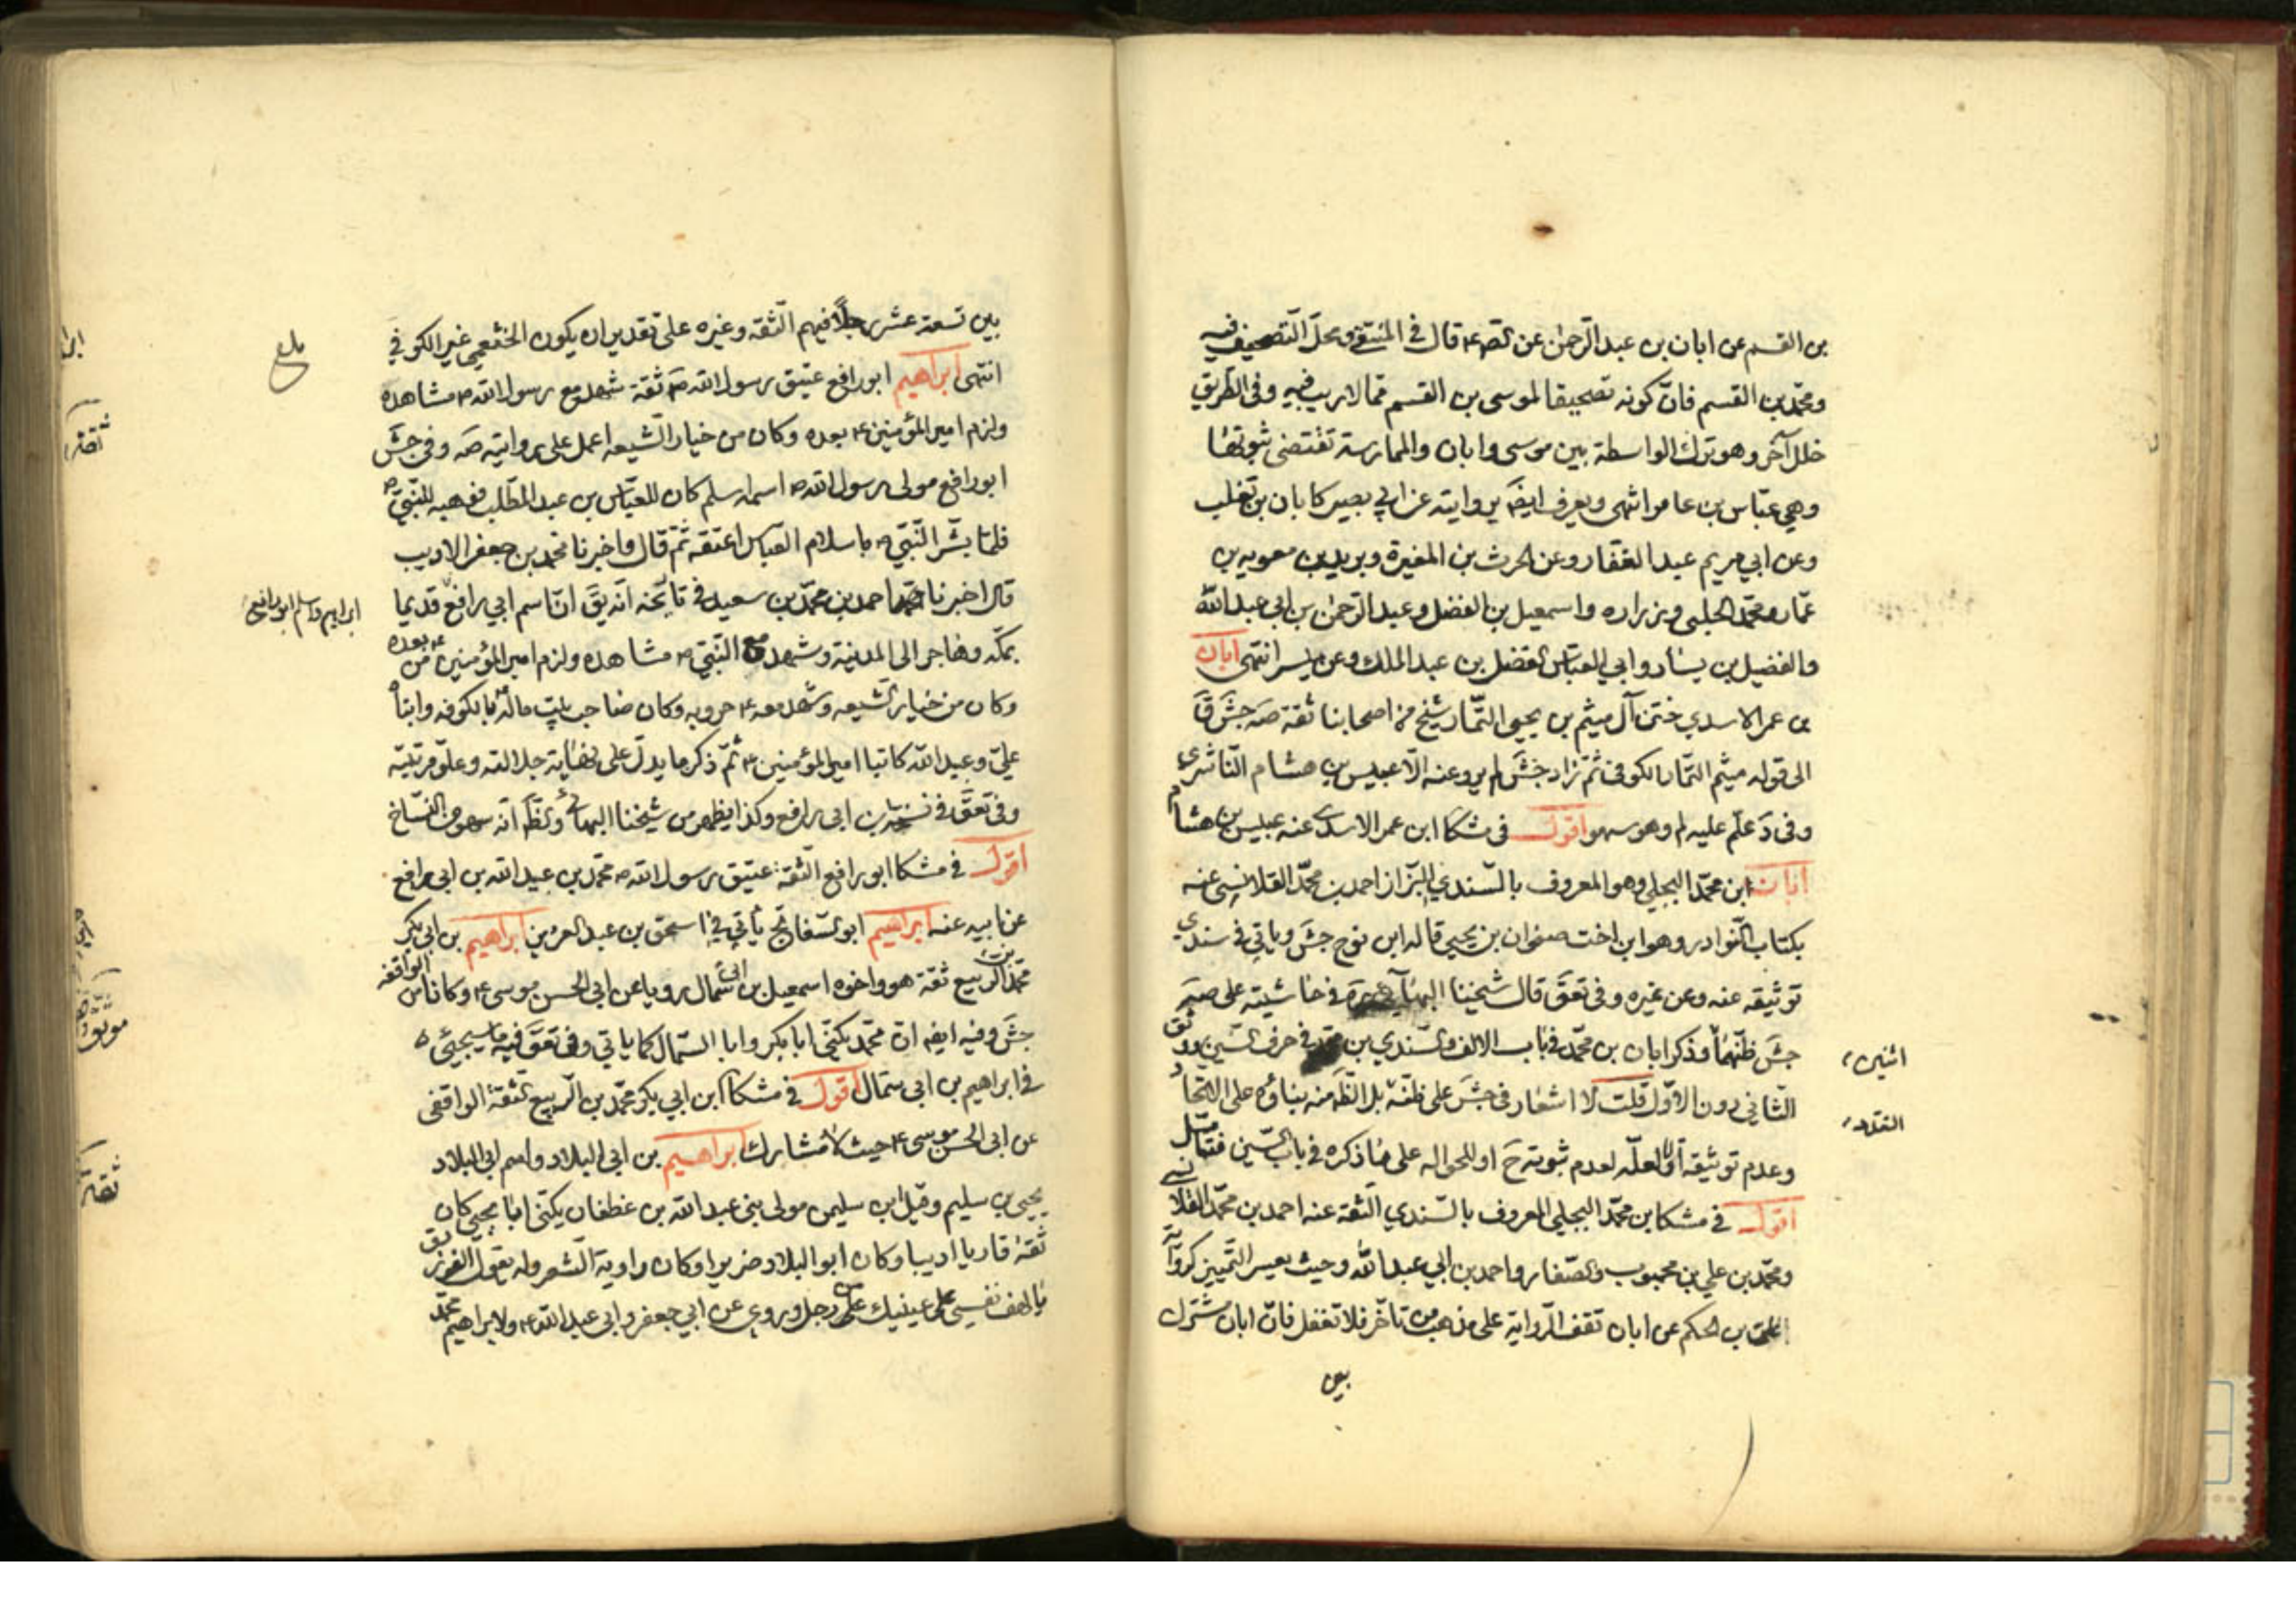 بن القسم عن ابان بن عبد الرحمن عن قال في المنتقى ومحل التصحيف فيه
ومحمد بن القسم فان كونه تصحيفا لموسى بن القسم مما لا ريب فيه وفي الطريق
خلل آخر وهو ترك الواسطة بين موسى وابان والممارسة تقتضي ثبوتها
وهي عباس بن عامر انتهى ويعرف ايضا بروايته عن ابي بصير كابان بن تغلب
وعن ابي مريم عبد الغفار وعن الحرث بن المغيرة وبريد بن معويه بن
عمار ومحمد الحلبي وزراره واسمعيل بن الفضل وعبد الرحمن بن ابي عبد الله
والفضيل بن يسار وابي العباس الفضل بن عبد الملك وعن ميسر انتهى ابان
بن عمر الاسدي ختن آل ميثم بن يحيى التمار شيخ من اصحابنا ثقة صه جش
الى قوله ميثم التمار الكوفي ثم زاد جش لم يرو عنه الا عبيس بن هشام الناشري
وفي د علم عليه لم وهو سهو اقول في مشكا ابن عمر الاسدي عنه عبيس بن هشام
ابان ابن محمد البجلي وهو المعروف بالسندي البزاز احمد بن محمد القلانسي عنه
بكتاب النوادر وهو ابن اخت صفوان بن يحيى قاله ابن نوح جش وياتي في سندي
توثيقه عنه وعن غيره وفي تعق قال شيخنا البهائي ره في حاشيته على صه
جش ظنهما وذكر ابان بن محمد في باب الالف والسندي بن محمد في حرف السين ووثق
الثاني دون الاول قلت لا اشعار في جش على ظنه بل الظ منه بناؤه على الاتحاد
وعدم توثيقه اولا لعله لعدم ثبوته ح او للحواله على ما ذكره في باب السين فتامل
اقول في مشكا ابن محمد البجلي المعروف بالسندي الثقة عنه احمد بن محمد القلانسي
ومحمد بن علي بن محبوب والصفار واحمد بن ابي عبد الله وحيث يعسر التمييز كرواية
علي بن الحكم عن ابان تقف الرواية على مذهب من تاخر فلا تغفل فان ابان مشترك
بين
اثنين
بين تسعة عشر رجلا فيهم الثقه وغيره على تقدير ان يكون الخثعمي غير الكوفي
انتهى ابراهيم ابو رافع عتيق رسول الله ص ثقة شهد مع رسول الله ص مشاهده
ولزم امير المؤمنين ع بعده وكان من خيار الشيعه اعمل على روايته صه وفي جش
ابو رافع مولى رسول الله ص اسمه اسلم كان للعباس بن عبد المطلب فوهبه للنبي ص
فلما بشر النبي ص باسلام العباس اعتقه ثم قال واخبرنا محمد بن جعفر الاديب
قال اخبرنا احمد بن محمد بن سعيد في تاريخه انه يق ان اسم ابي رافع قديما
بمكه وهاجر الى المدينة وشهد مع النبي ص مشاهده ولزم امير المؤمنين ع من بعده
وكان من خيار الشيعه وشهد معه ع حروبه وكان صاحب بيت ماله بالكوفه وابناه
علي وعبيد الله كاتبا امير المؤمنين ع ثم ذكر ما يدل على نهاية جلالته وعلو مرتبته
وفي تعق في نسخة بن ابي رافع وكذا يظهر من شيخنا البهائي والظ انه سهو من النساخ
اقول في مشكا ابو رافع الثقة عتيق رسول الله ص محمد بن عبيد الله بن ابي رافع
عن ابيه عنه ابراهيم ابو السفاتج ياتي في اسحق بن عبد العزيز ابراهيم بن ابي بكر
محمد بن الربيع ثقة هو واخوه اسمعيل بن ابي السمال رويا عن ابي الحسن موسى ع وكانا من الواقفه
جش وفيه ايضا ان محمد يكنى ابا بكر وابا السمال كما ياتي وفي تعق فيه ما سيجئ
في ابراهيم بن ابي سمال اقول في مشكا ابن ابي بكر محمد بن الربيع الثقة الواقفي
عن ابي الحسن موسى ع حيث لا مشارك ابراهيم بن ابي البلاد واسم ابي البلاد
يحيى بن سليم وقيل ابن سليمن مولى بني عبد الله بن غطفان يكنى ابا يحيى كان
ثقة قاريا اديبا وكان ابو البلاد ضريرا وكان راوية الشعر وله يقول الفرزدق
يا لهف نفسي على عينيك من رجل وروى عن ابي جعفر وابي عبد الله ع ولابراهيم محمد
بلغ
ابراهيم واسلم ابو رافع
ثقة
موثق
ثقة